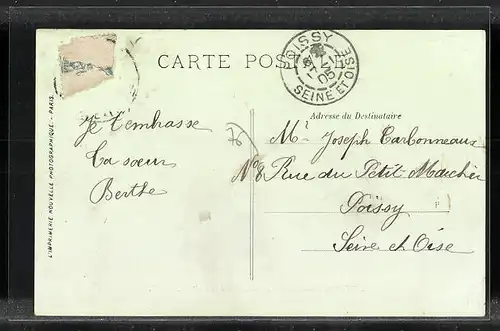 CARTE POS
POISSY
SEINE ET OISE
Adresse du Destinataire
Je t'embrasse
Ta sœur
Berthe
78
Mr Joseph Carbonneaux
No 8 Rue du Petit-Marché
Poissy
Seine et Oise
L'IMPRIMERIE NOUVELLE PHOTOGRAPHIQUE - PARIS.